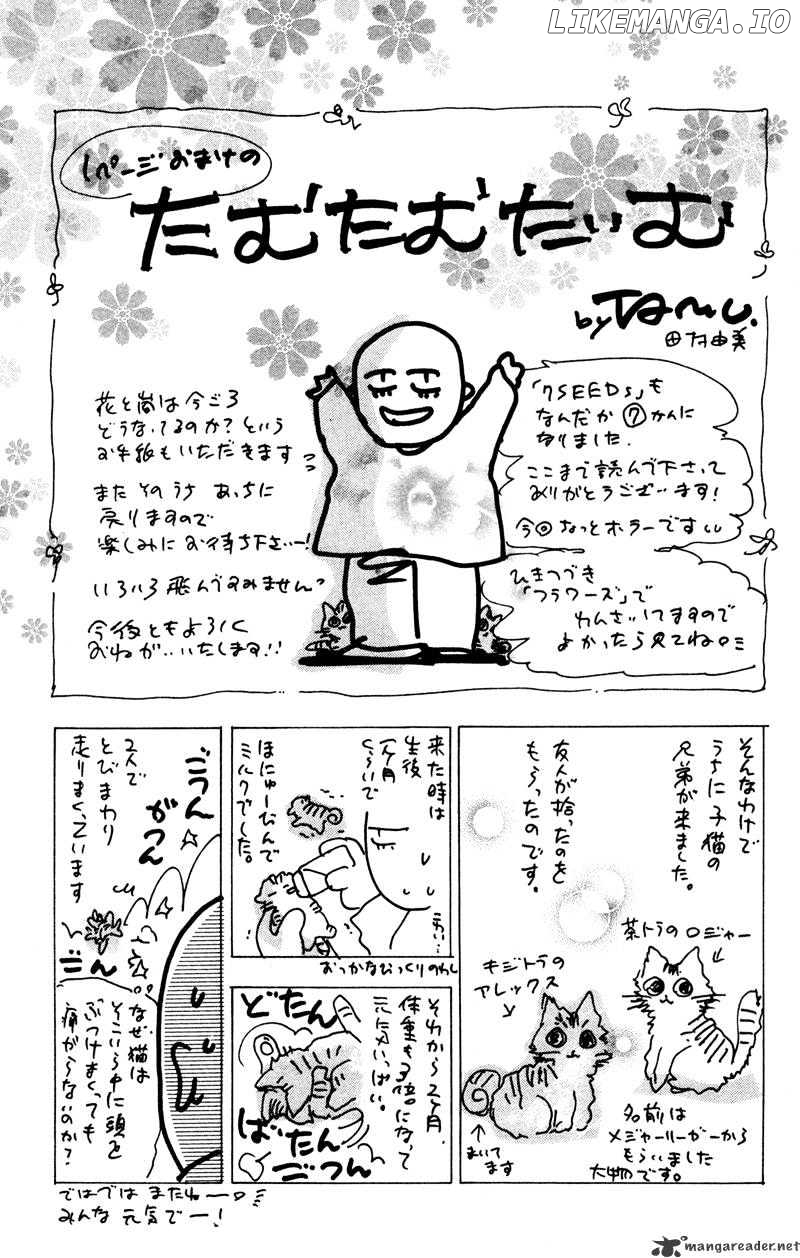 LIKEMANGA.IO
1ページおまけの
たむたむたいむ
by Tamu.
田村由美
「7SEEDS」も
なんだか⑦かんに
なりました.
ここまで読んで下さって
ありがとうございます!
今回なっとホラーです
ひきつづき
「フラワーズ」で
れんさいしてますので
よかったら見てね
花と嵐は今ごろ
どうなってるのか?という
お手紙もいただきます
またそのうち あっちに
戻りますので
楽しみにお待ち下さいー!
いろいろ飛んですみません
今後ともよろしく
おねがいいたします!!
そんなわけで
うちに子猫の
兄弟が来ました。
友人が拾ったのを
もらったのです。
茶トラのロジャー
キジトラの
アレックス
まいて
ます
名前は
メジャーリーガーから
もらいました
大物です。
来た時は
生後
1ヶ月
くらいで
ほにゅーびんで
ミルクでした。
おっかなびっくりのわし
それから2ヶ月、
体重も3倍になって
元気いっぱい。
どたん
ばたん
ごつん
2人で
とびまわり
走りまくっています
ごつん
がつん
ごん
なぜ猫は
そこいら中に頭を
ぶつけまくっても
痛がらないのか?
ではでは またねー
みんな 元気でー!
mangareader.net